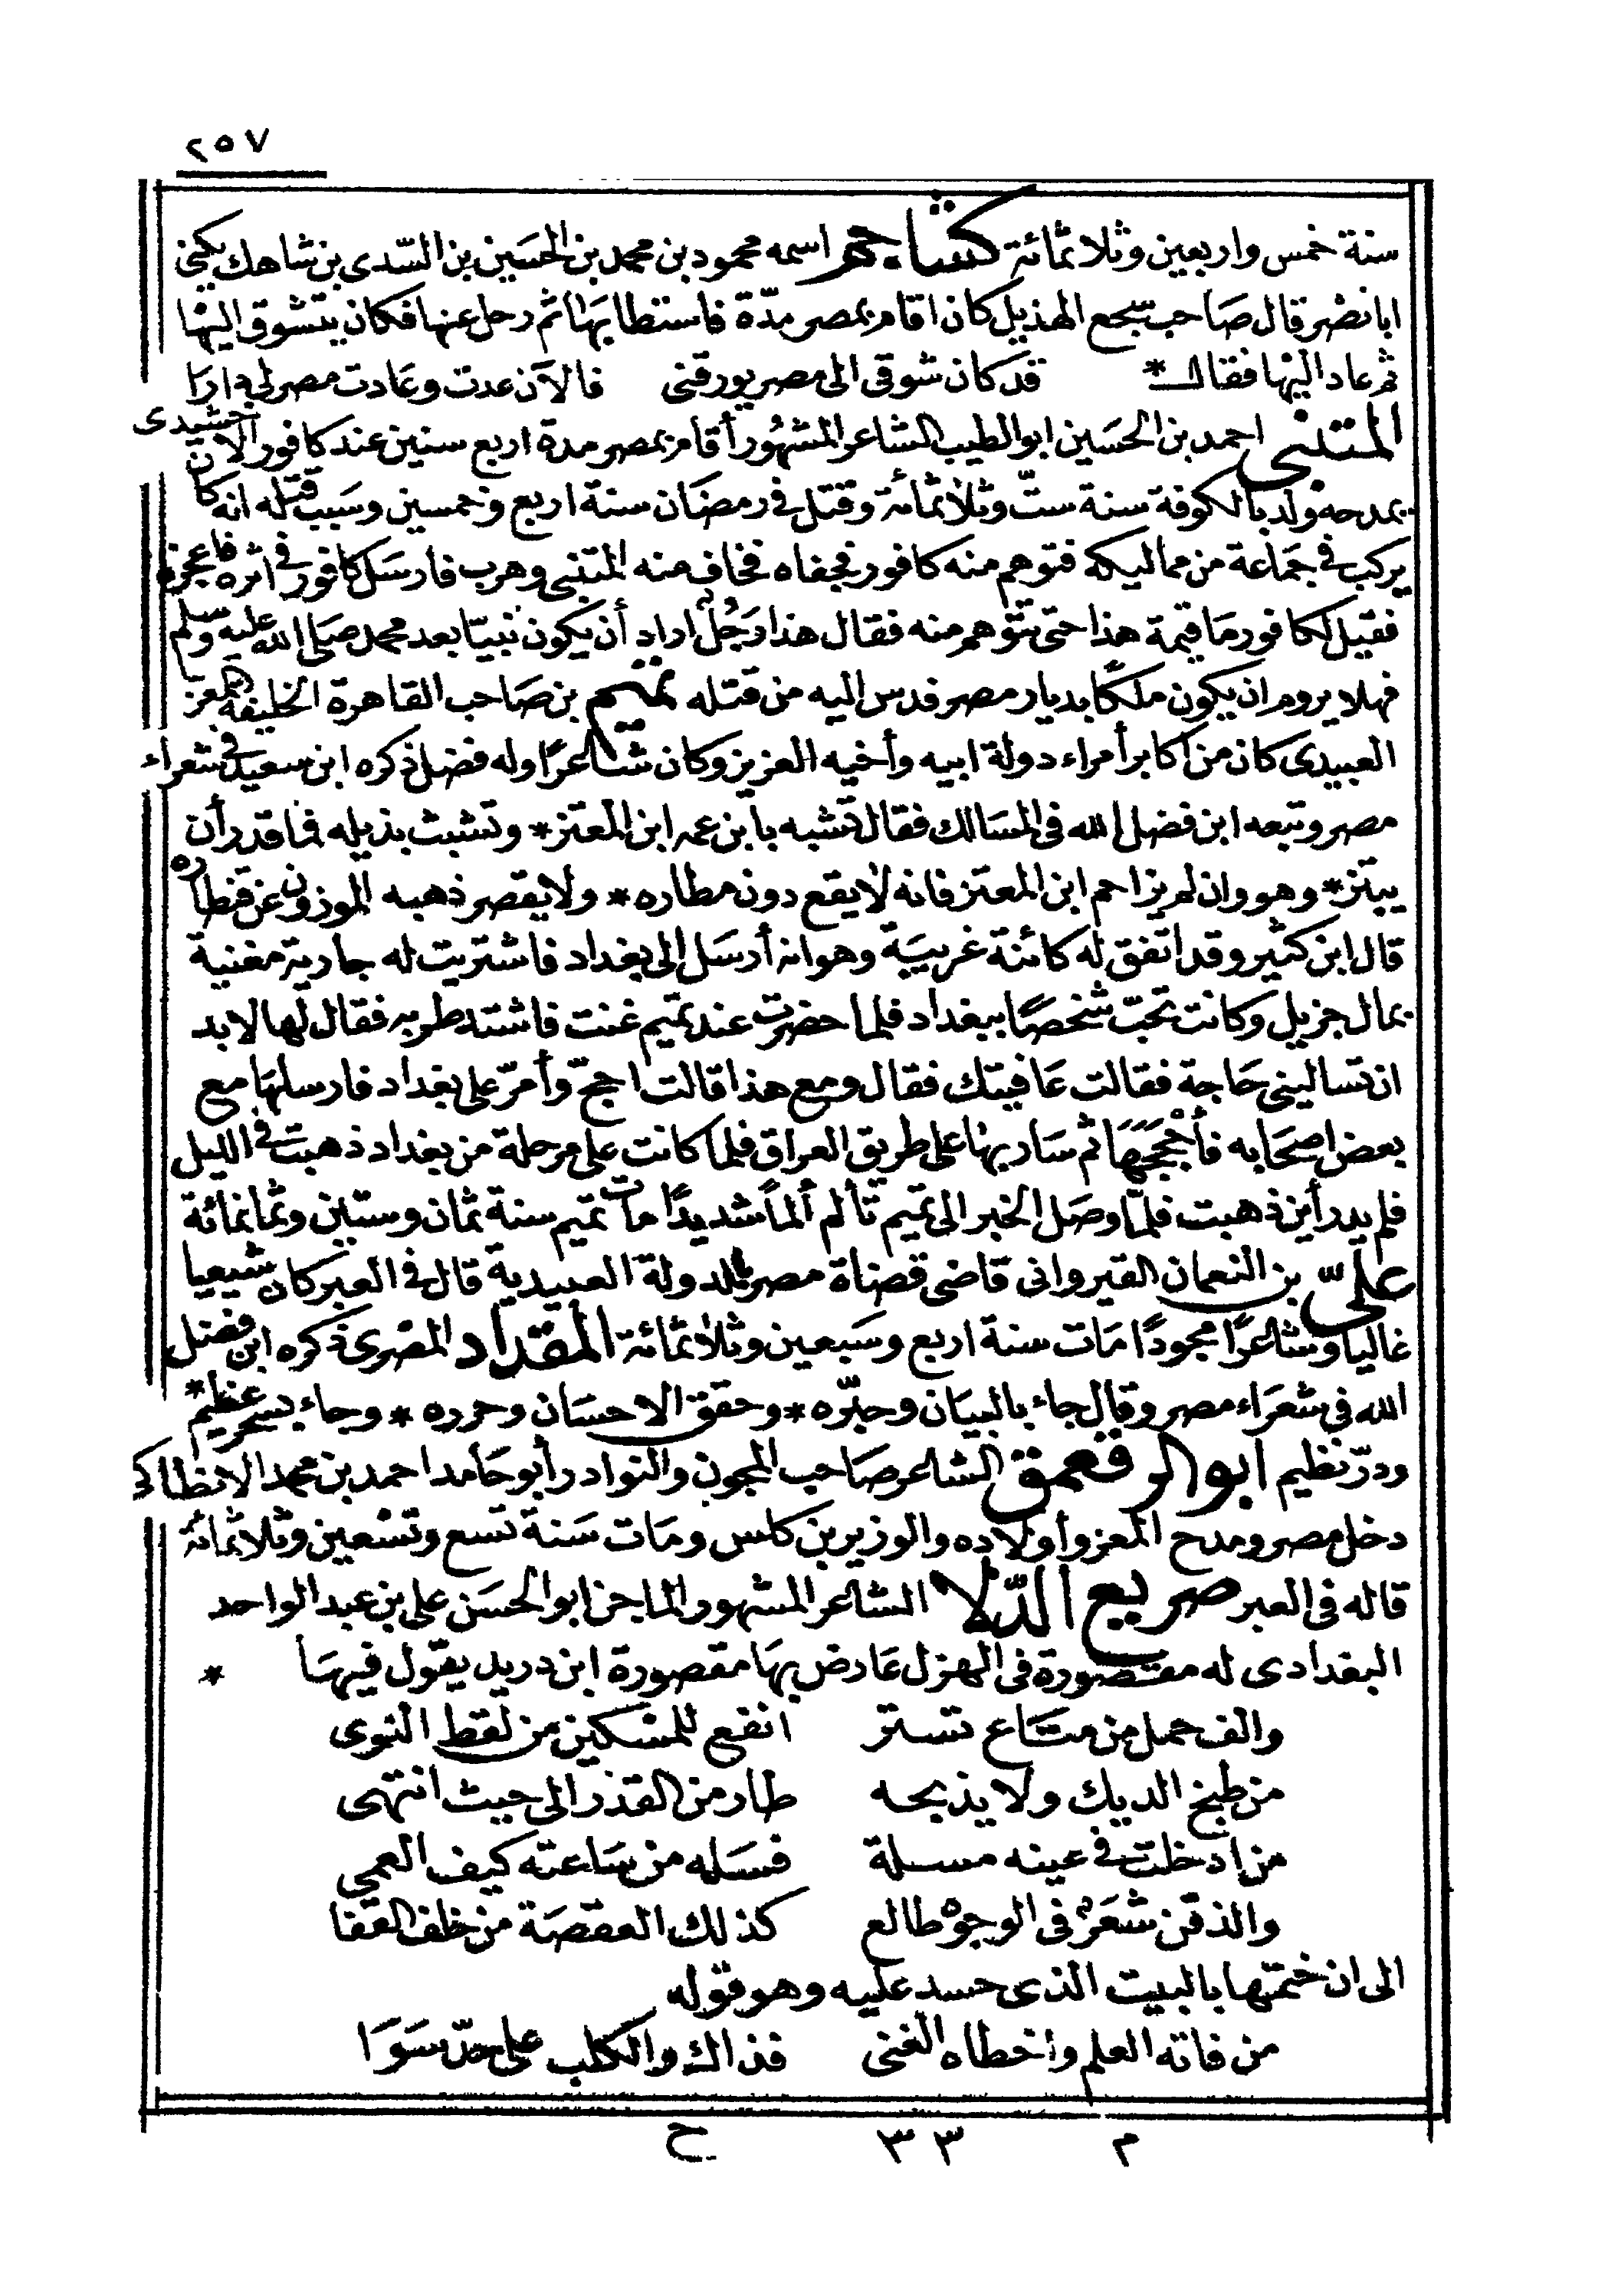 ٢٥٧
سنة خمس واربعين وثلاثمائة كشاجم اسمه محمود بن محمد بن الحسين بن السّدى بن شاهك يكنى
ابا نصر قال صاحب سجع الهذيل كان اقام بمصر مدّة فاستطابها ثم رحل عنها فكان يتشوق اليها
ثم عاد اليها فقال * قد كان شوقى الى مصر يورقنى فالآن عدت وعادت مصر لى دارا
المتنبى احمد بن الحسين ابو الطيب الشاعر المشهور أقام بمصر مدة اربع سنين عند كافور الاخشيدى
يمدحه ولد بالكوفة سنة ستّ وثلاثمائة وقتل فى رمضان سنة اربع وخمسين وسبب قتله انه كان
يركب فى جماعة من مماليكه فتوهم منه كافور فجفاه فخاف منه المتنبى وهرب فارسل كافور فى اثره فاعجزه
فقيل لكافور ما قيمة هذا حتى تتوهم منه فقال هذا رجُلٌ اراد أن يكون نبيّا بعد محمد صلى الله عليه وسلم
فهلا يروم ان يكون ملكًا بديار مصر فدس اليه من قتله تميم بن صاحب القاهرة الخليفة المعز
العبيدى كان من أكابر أمراء دولة ابيه وأخيه العزيز وكان شاعرًا وله فضل ذكره ابن سعيد فى شعراء
مصر وتبعه ابن فضل الله فى المسالك فقال تشبه بابن عمه ابن المعتز * وتشبث بذيله فما قدر أن
يبتز * وهو وان لم يزاحم ابن المعتز فانه لا يقع دون مطاره * ولا يقصر ذهبه الموزون عن قنطاره
قال ابن كثير وقد اتفق له كائنة غريبة وهو انه أرسل الى بغداد فاشتريت له جارية مغنية
بمال جزيل وكانت تحبّ شخصًا ببغداد فلما حضرت عند تميم غنت فاشتد طربه فقال لها لا بد
ان تسالينى حاجة فقالت عافيتك فقال ومع هذا قالت احجّ وأمرّ على بغداد فارسلها مع
بعض اصحابه فأحْجَجَهَا ثم سار بها على طريق العراق فلما كانت على مرحلة من بغداد ذهبت فى الليل
فلم يدر أين ذهبت فلمّا وصل الخبر الى تميم تألم ألمًا شديدًا مات تميم سنة ثمان وستين وثمانمائة
علىّ بن النعمان القيروانى قاضى قضاة مصر للدولة العبيدية قال فى العبر كان شيعيا
غاليا وشاعرًا مجودًا مات سنة اربع وسبعين وثلاثمائة المقداد المصرى ذكره ابن فضل
الله فى شعراء مصر وقال جاء بالبيان وحبّره * وحقق الاحسان وحرره * وجاء بسحر عظيم *
ودرّ نظيم ابو الرقعمق الشاعر صاحب المجون والنوادر أبو حامد احمد بن محمد الانطاكى
دخل مصر ومدح المعز وأولاده والوزير بن كلس ومات سنة تسع وتسعين وثلاثمائة
قاله فى العبر صريع الدّلا الشاعر المشهور الماجن ابو الحسن على بن عبد الواحد
البغدادى له مقصورة فى الهزل عارض بها مقصورة ابن دريد يقول فيها *
والف حمل من متاع تستر انفع للمسكين من لقط النوى
من طبخ الديك ولا يذبحه طار من القذر الى حيث انتهى
من ادخلت فى عينه مسلة فسله من ساعته كيف العمى
والذقن شعرٌ فى الوجوه طالع كذلك العقصة من خلف القفا
الى ان ختمها بالبيت الذى حسد عليه وهو قوله
من فاته العلم واخطاه الغنى فذاك والكلب على حدّ سَوَا
م ٣٣ ح